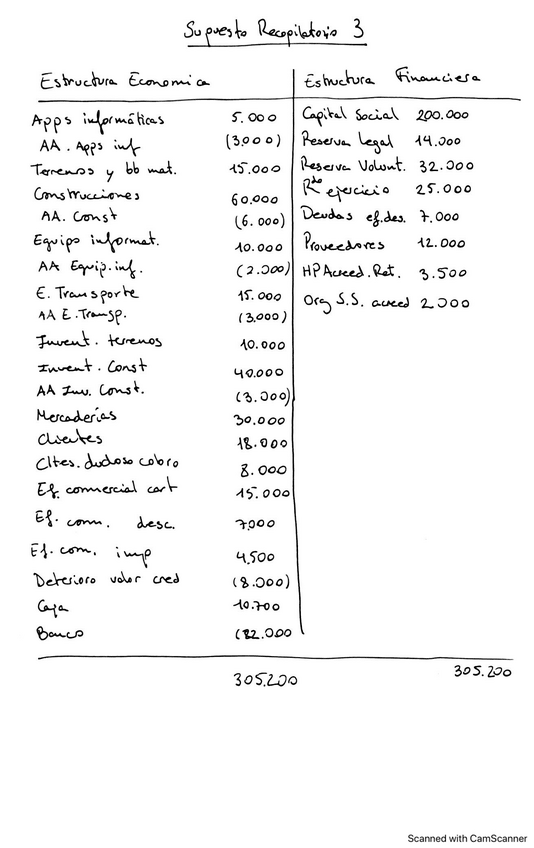 Supuesto Recopilatorio 3
Estructura Economica
Apps informáticas 5.000
AA. Apps inf (3.000)
Terrenos y bb mat. 15.000
Construcciones 60.000
AA. Const (6.000)
Equips informat. 10.000
AA Equip. inf. (2.000)
E. Transporte 15.000
AA E. Transp. (3.000)
Invent. terrenos 10.000
Invent. Const 40.000
AA Inv. Const. (3.000)
Mercaderías 30.000
Clientes 18.000
Cltes. dudoso cobro 8.000
Ef. commercial cart 15.000
Ef. com. desc. 7000
Ef. com. imp 4.500
Deterioro valor cred (8.000)
Caja 10.700
Banco
305.200
Estructura Financiera
Capital Social 200.000
Reserva Legal 14.000
Reserva Volunt. 32.000
Rdo ejercicio 25.000
Deudas ef. des. 7.000
Proveedores 12.000
HP Acreed. Ret. 3.500
Org S.S. acreed 2000
305.200
Scanned with CamScanner